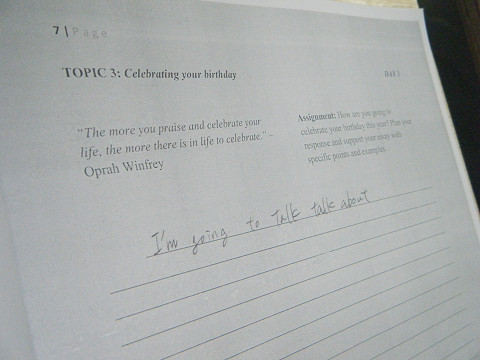 7 | Page
TOPIC 3: Celebrating your birthday
DAY 3
“The more you praise and celebrate your
life, the more there is in life to celebrate.” –
Oprah Winfrey
Assignment: How are you going to
celebrate your birthday this year? Plan your
response and support your essay with
specific points and examples.
I'm going to talk talk about